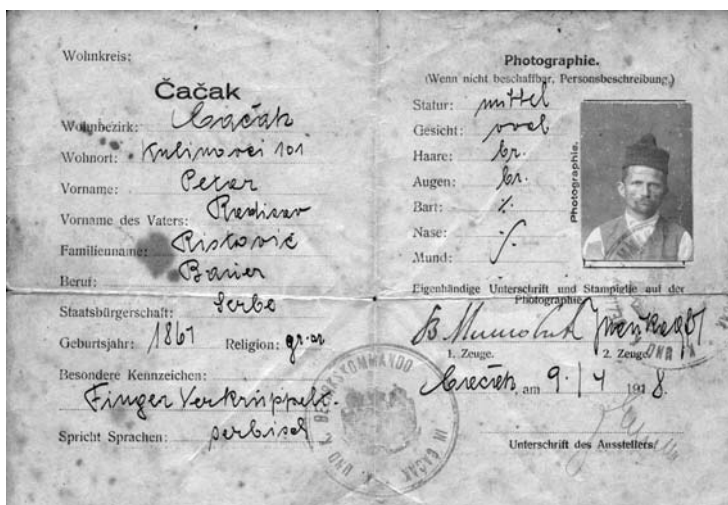 Wohnkreis:
Čačak
Wohnbezirk: Čačak
Wohnort: Kulinovci 101
Vorname: Petar
Vorname des Vaters: Radisav
Familienname: Ristović
Beruf: Bauer
Staatsbürgerschaft: Serbe
Geburtsjahr: 1867 Religion: gr. or
Besondere Kennzeichen:
Finger Verkrüppelt.
Spricht Sprachen: serbisch
K. UND K. BEZIRKSKOMMANDO IN ČAČAK
Photographie.
(Wenn nicht beschaffbar, Personsbeschreibung.)
Statur: mittel
Gesicht: oval
Haare: br.
Augen: br.
Bart: %
Nase: %
Mund:
Photographie.
Eigenhändige Unterschrift und Stampiglie auf der
Photographie
1. Zeuge. 2. Zeuge.
Čačak, am 9./4 1918.
Unterschrift des Ausstellers: